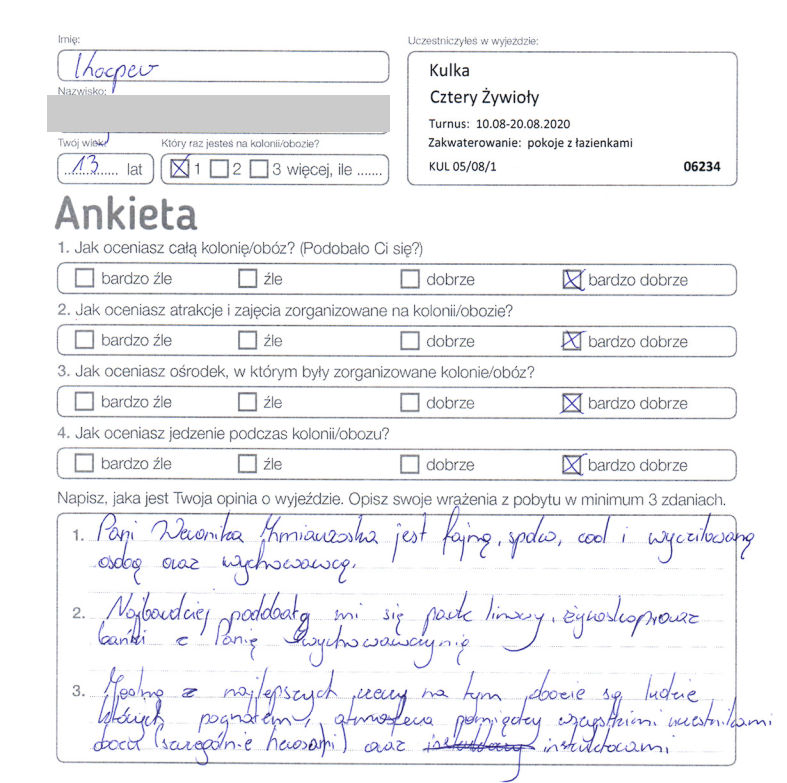 Imię:
Khacper
Nazwisko:
Twój wiek:
13 lat
Który raz jesteś na kolonii/obozie?
1 2 3 więcej, ile .......
Uczestniczyłeś w wyjeździe:
Kulka
Cztery Żywioły
Turnus: 10.08-20.08.2020
Zakwaterowanie: pokoje z łazienkami
KUL 05/08/1 06234
Ankieta
1. Jak oceniasz całą kolonię/obóz? (Podobało Ci się?)
bardzo źle źle dobrze bardzo dobrze
2. Jak oceniasz atrakcje i zajęcia zorganizowane na kolonii/obozie?
bardzo źle źle dobrze bardzo dobrze
3. Jak oceniasz ośrodek, w którym były zorganizowane kolonie/obóz?
bardzo źle źle dobrze bardzo dobrze
4. Jak oceniasz jedzenie podczas kolonii/obozu?
bardzo źle źle dobrze bardzo dobrze
Napisz, jaka jest Twoja opinia o wyjeździe. Opisz swoje wrażenia z pobytu w minimum 3 zdaniach.
1. Pani Weronika jest fajną, spoko, cool i wyczilowaną
osobą oraz wychowawcą.
2. Najbardziej poddobały mi się park linowy, oraz
bańki z Panią wychowawczynią
3. Jedną z najlepszych rzeczy na tym obozie są ludzie
których poznałem, atmosfera pomiędzy wszystkimi uczestnikami
obozu (szczególnie herosami) oraz instruktorami